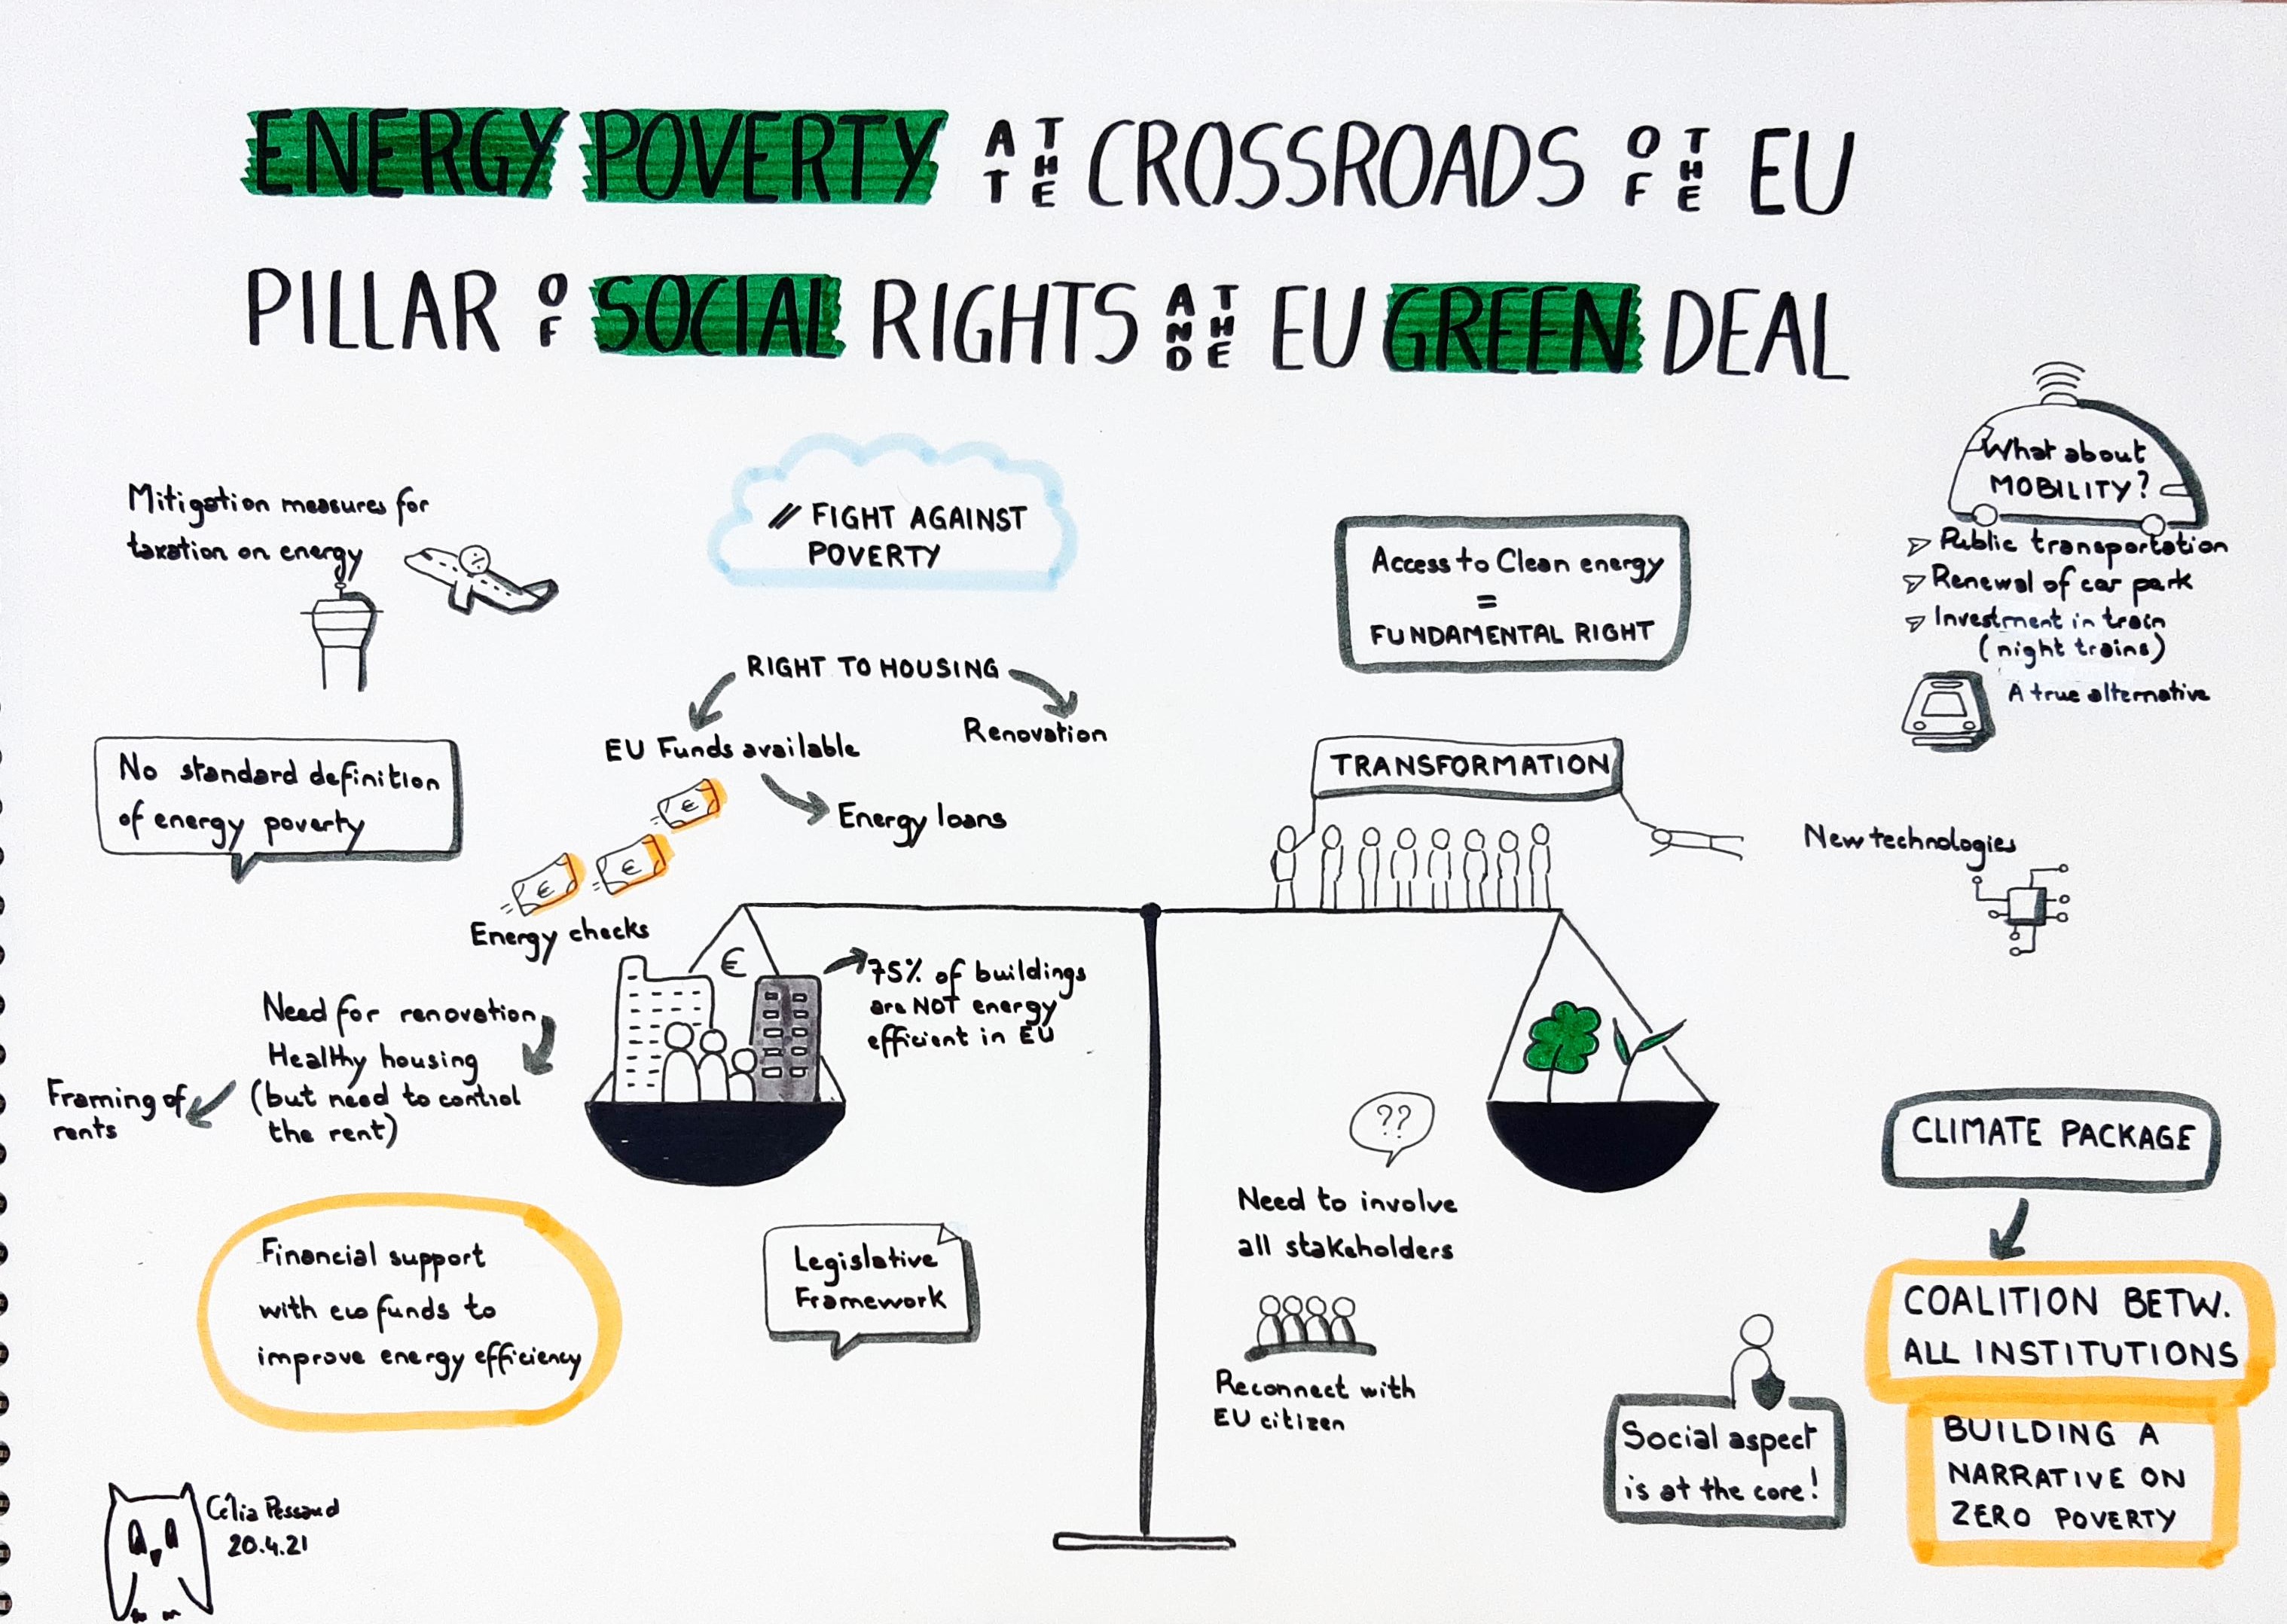 ENERGY POVERTY AT THE CROSSROADS OF THE EU
PILLAR OF SOCIAL RIGHTS AND THE EU GREEN DEAL
Mitigation measures for
taxation on energy
// FIGHT AGAINST
POVERTY
Access to Clean energy
=
FUNDAMENTAL RIGHT
What about
MOBILITY?
Public transportation
Renewal of car park
Investment in train
(night trains)
A true alternative
RIGHT TO HOUSING
EU Funds available
Renovation
Energy loans
€
€
€
Energy checks
No standard definition
of energy poverty
TRANSFORMATION
New technologies
€
75% of buildings
are NOT energy
efficient in EU
Need for renovation
Healthy housing
(but need to control
the rent)
Framing of
rents
??
Need to involve
all stakeholders
Reconnect with
EU citizen
CLIMATE PACKAGE
COALITION BETW.
ALL INSTITUTIONS
BUILDING A
NARRATIVE ON
ZERO POVERTY
Financial support
with funds to
improve energy efficiency
Legislative
Framework
Social aspect
is at the core!
Célia Pessaud
20.4.21